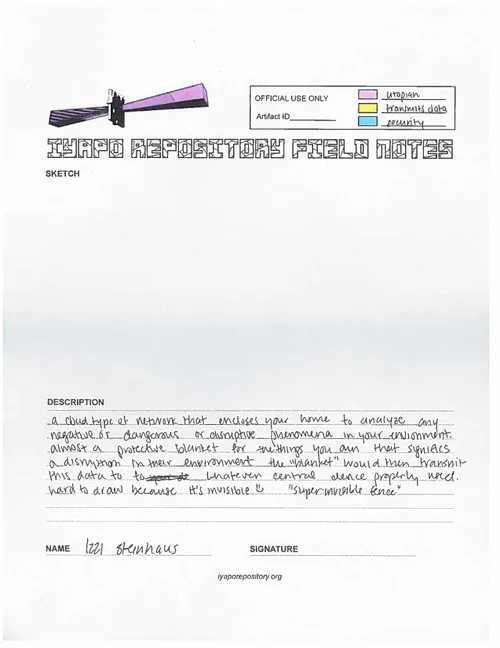 OFFICIAL USE ONLY
Artifact ID
utopian
transmits data
security
IYAPO REPOSITORY FIELD NOTES
SKETCH
DESCRIPTION
a cloud type of network that encloses your home to analyze any
negative or dangerous or disruptive phenomena in your enviornment.
almost a protective blanket for the things you own that signifies
a disruption in their environment the "blanket" would then transmit
this data to to whatever central device properly
hard to draw because it's invisible "super invisible fence"
NAME Izzi Steinhaus SIGNATURE
iyaporepository.org